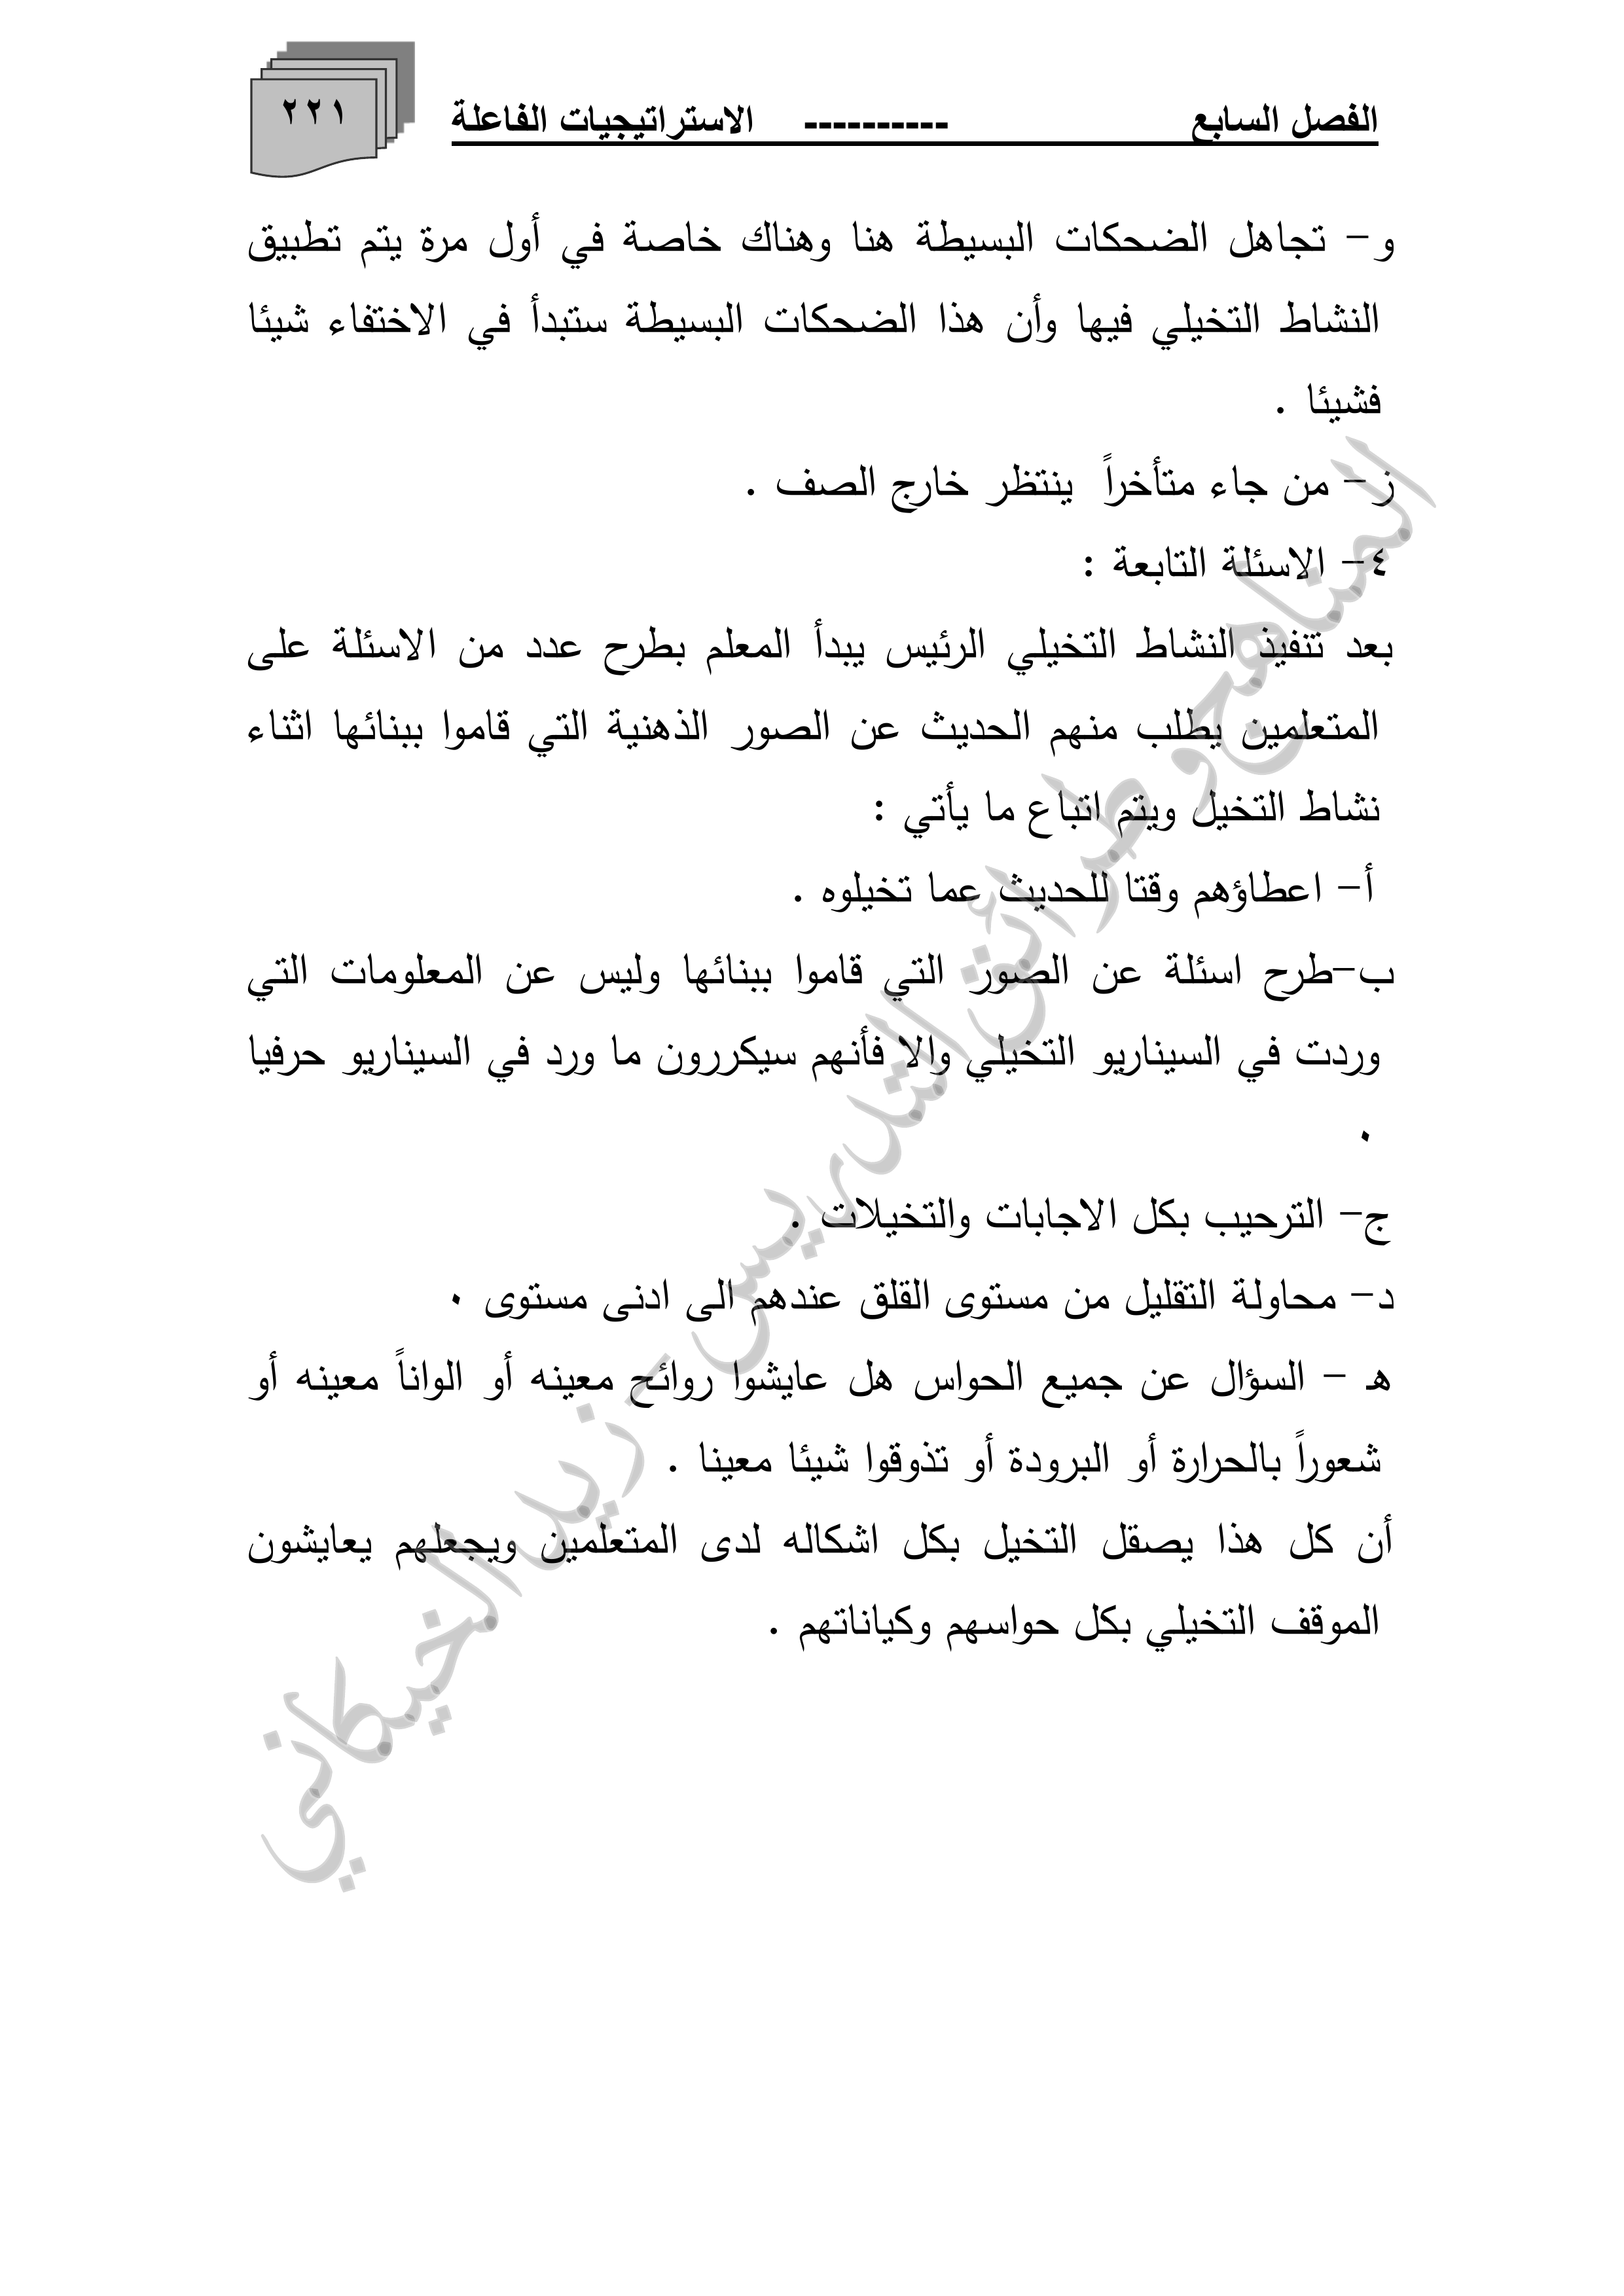 الفصل السابع ---------- الاستراتيجيات الفاعلة
٢٢١
و- تجاهل الضحكات البسيطة هنا وهناك خاصة في أول مرة يتم تطبيق
النشاط التخيلي فيها وأن هذا الضحكات البسيطة ستبدأ في الاختفاء شيئا
فشيئا .
ز- من جاء متأخراً ينتظر خارج الصف .
٤- الاسئلة التابعة :
بعد تنفيذ النشاط التخيلي الرئيس يبدأ المعلم بطرح عدد من الاسئلة على
المتعلمين يطلب منهم الحديث عن الصور الذهنية التي قاموا ببنائها اثناء
نشاط التخيل ويتم اتباع ما يأتي :
أ- اعطاؤهم وقتا للحديث عما تخيلوه .
ب-طرح اسئلة عن الصور التي قاموا ببنائها وليس عن المعلومات التي
وردت في السيناريو التخيلي والا فأنهم سيكررون ما ورد في السيناريو حرفيا
٠
ج- الترحيب بكل الاجابات والتخيلات .
د- محاولة التقليل من مستوى القلق عندهم الى ادنى مستوى ٠
هـ - السؤال عن جميع الحواس هل عايشوا روائح معينه أو الواناً معينه أو
شعوراً بالحرارة أو البرودة أو تذوقوا شيئا معينا .
أن كل هذا يصقل التخيل بكل اشكاله لدى المتعلمين ويجعلهم يعايشون
الموقف التخيلي بكل حواسهم وكياناتهم .
المناهج وطرائق التدريس - زيد الخيكاني